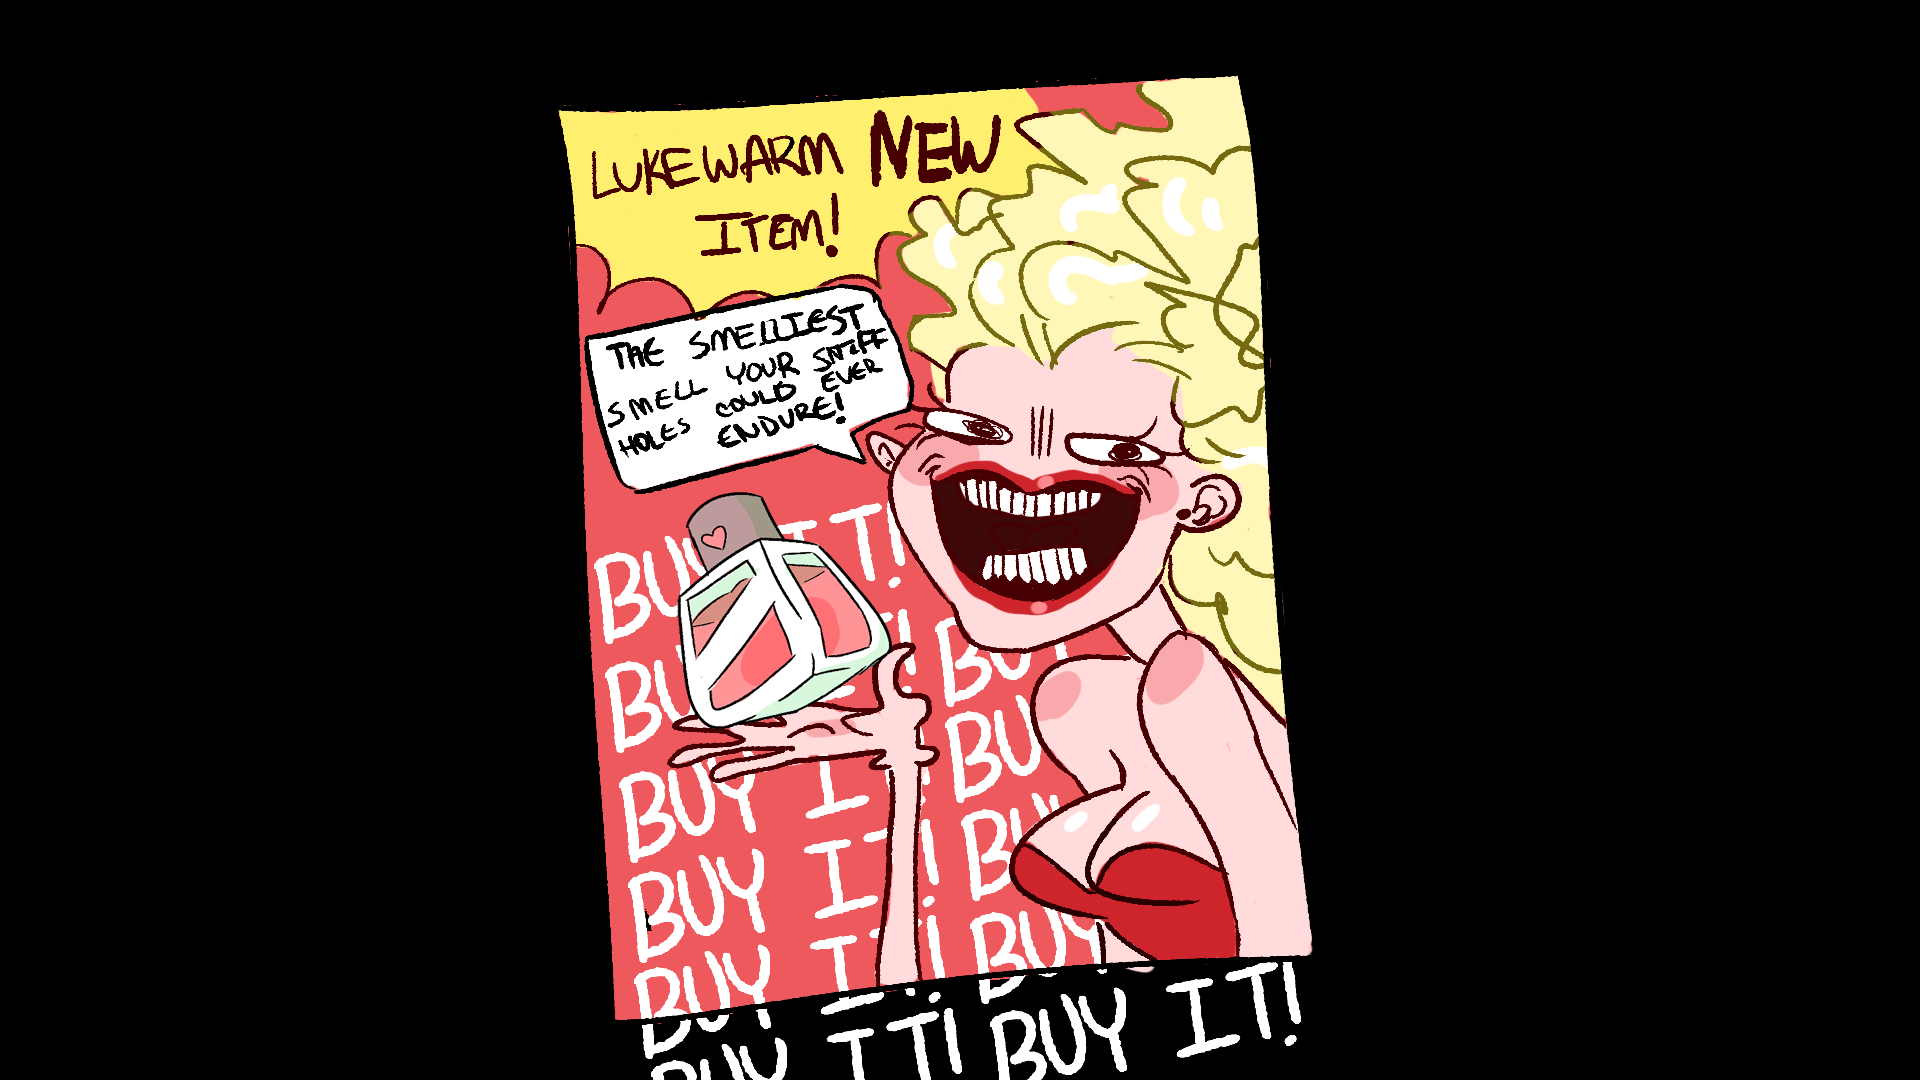 LUKEWARM NEW
ITEM!
THE SMELLIEST
SMELL YOUR SNIFF
HOLES COULD EVER
ENDURE!
BUY IT!
BUY IT! BUY
BUY IT! BUY
BUY IT! BUY
BUY IT! BUY
BUY IT! BUY IT!